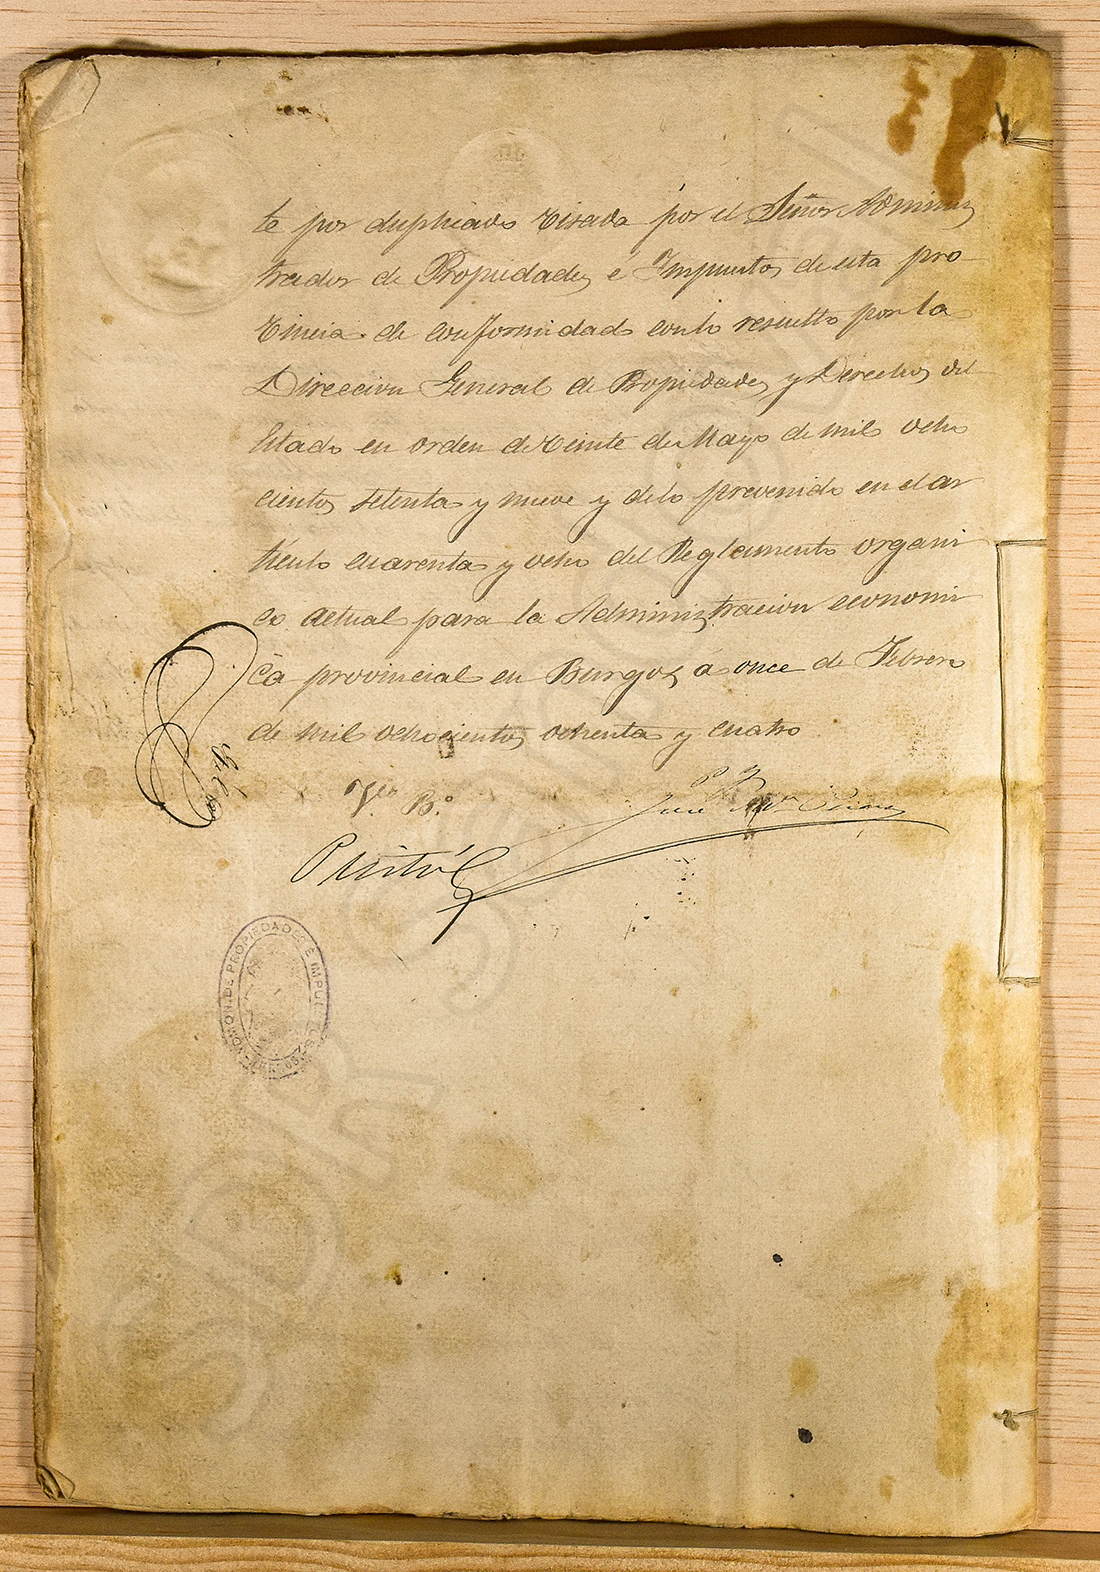 te por duplicado visada por el Señor Adminis
trador de Propiedades é Impuestos de esta pro
vincia de conformidad con lo resuelto por la
Direccion General de Propiedades y Derechos del
Estado en orden de veinte de Mayo de mil ocho
cientos setenta y nueve y de lo prevenido en el ar
ticulo cuarenta y ocho del Reglamento organi
co actual para la Administracion economi
ca provincial en Burgos á once de Febrero
de mil ochocientos ochenta y cuatro
Vto. B.o
José Ma
DE PROPIEDADES É IMPUESTOS